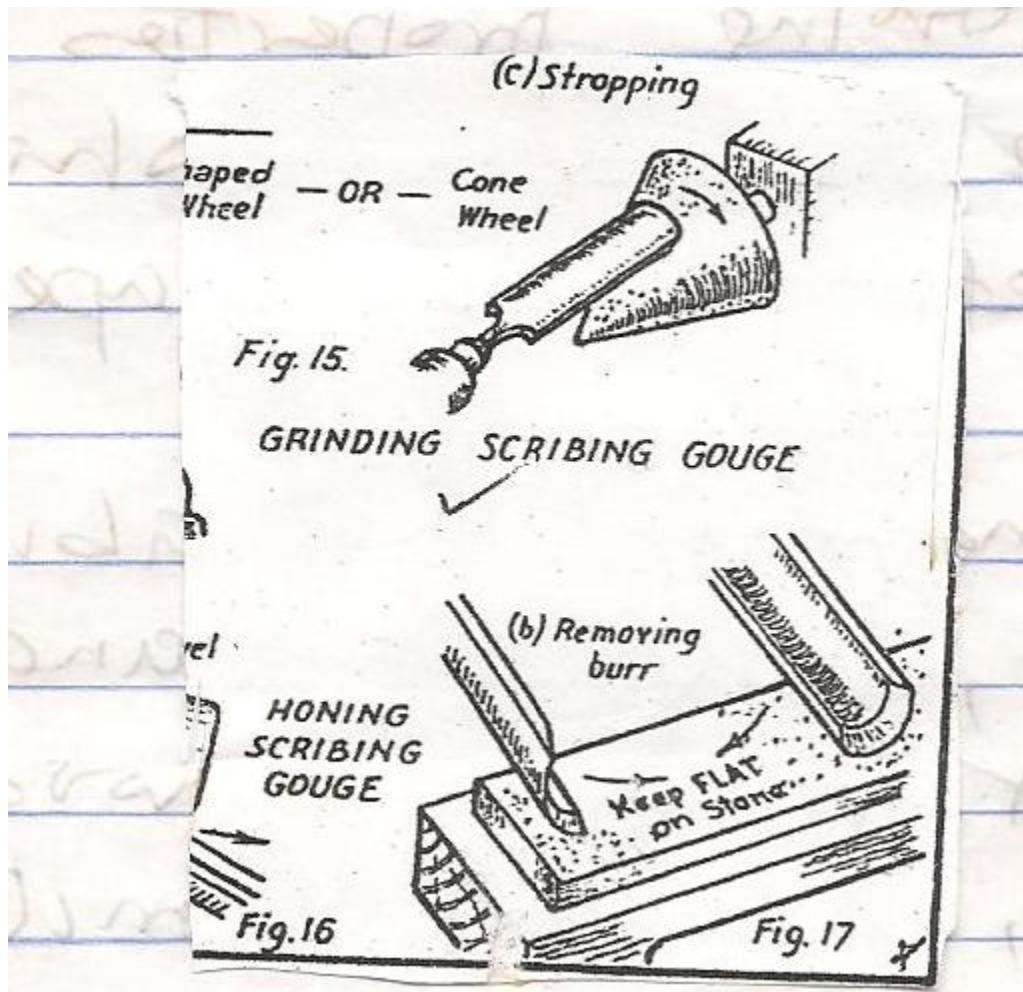 (c) Stropping
haped
Wheel
— OR —
Cone
Wheel
Fig. 15.
GRINDING SCRIBING GOUGE
(b) Removing
burr
vel
HONING
SCRIBING
GOUGE
Keep FLAT
on Stone
Fig. 16
Fig. 17